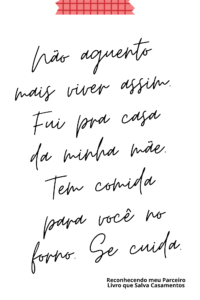 Não aguento
mais viver assim.
Fui pra casa
da minha mãe.
Tem comida
para você no
forno. Se cuida.
Reconhecendo meu Parceiro
Livro que Salva Casamentos